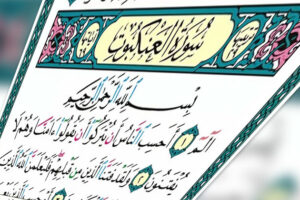 سورة العنكبوت
بسم الله الرحمن الرحيم
الم ١ أحسب الناس أن يتركوا أن يقولوا ءامنا وهم لا
يفتنون ٢ ولقد فتنا الذين من قبلهم فليعلمن الله الذين